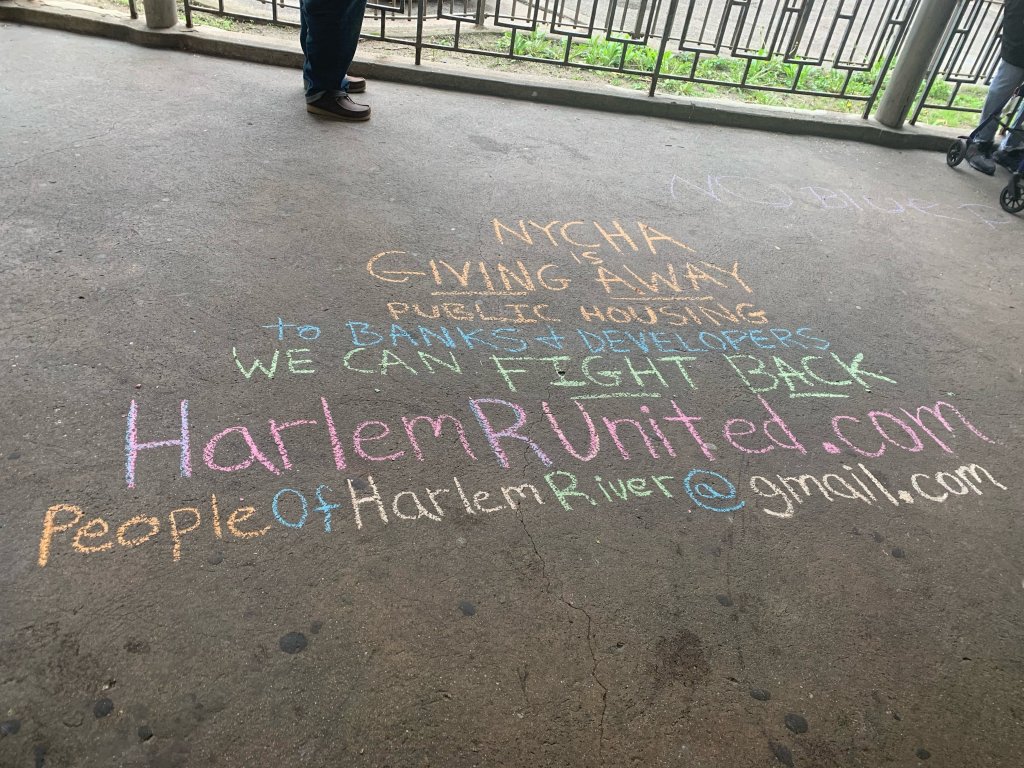 NO Blue P
NYCHA
IS
GIVING AWAY
PUBLIC HOUSING
to BANKS & DEVELOPERS
WE CAN FIGHT BACK
HarlemRUnited.com
PeopleOfHarlemRiver@gmail.com